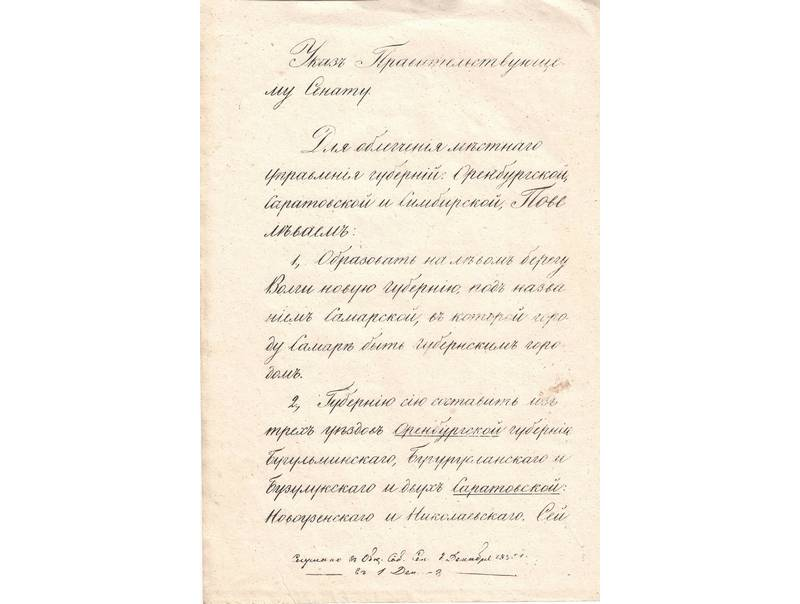 Указъ Правительствующе
му Сенату
Для облегченія мѣстнаго
управленія губерній: Оренбургской,
Саратовской и Симбирской, Пове
лѣваемъ:
1, Образовать на лѣвомъ берегу
Волги новую губернію, подъ назва
ніемъ Самарской, въ которой горо
ду Самарѣ быть губернскимъ горо
домъ.
2, Губернію сію составить изъ
трехъ уѣздовъ Оренбургской губерніи
Бугульминскаго, Бугурусланскаго и
Бузулукскаго и двухъ Саратовской:
Новоузенскаго и Николаевскаго. Сей
Слушано въ Общ. Соб. 2 Декабря
1 Деп.